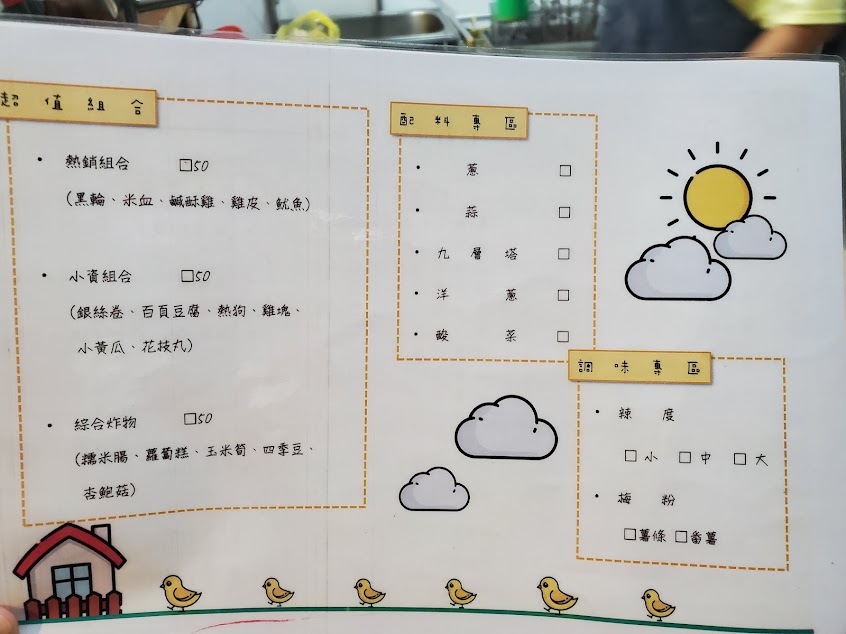 超值組合
• 熱銷組合 □50
(黑輪、米血、鹹酥雞、雞皮、魷魚)
• 小資組合 □50
(銀絲卷、百頁豆腐、熱狗、雞塊、
小黃瓜、花枝丸)
• 綜合炸物 □50
(糯米腸、蘿蔔糕、玉米筍、四季豆、
杏鮑菇)
配料專區
• 蔥 □
• 蒜 □
• 九層塔 □
• 洋蔥 □
• 酸菜 □
調味專區
• 辣度
□小 □中 □大
• 梅粉
□薯條 □番薯